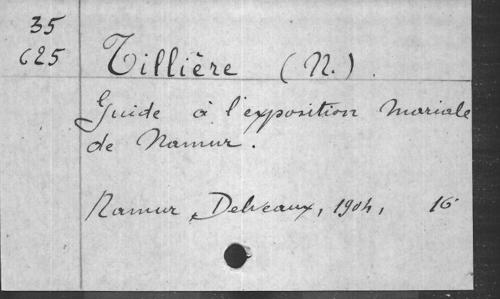 35
625
Tillière (N.).
Guide à l'exposition mariale
de Namur.
Namur, Delveaux, 1904, 16°